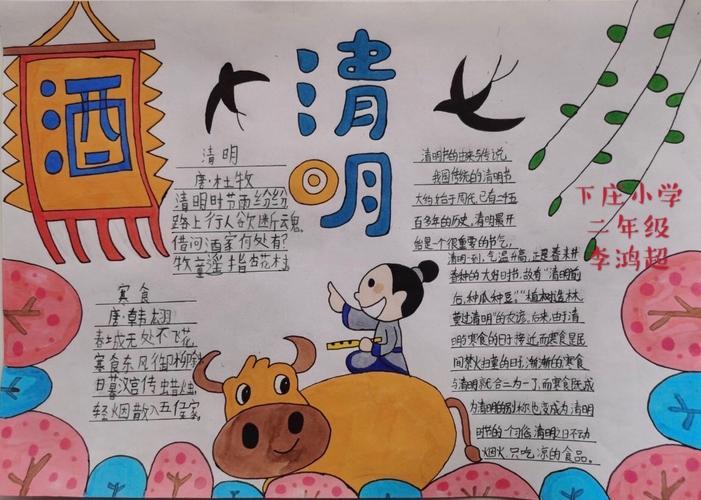 酒
清明
清明
唐·杜牧
清明时节雨纷纷
路上行人欲断魂。
借问酒家何处有?
牧童遥指杏花村
寒食
唐·韩翃
春城无处不飞花,
寒食东风御柳斜
日暮汉宫传蜡烛,
轻烟散入五侯家
清明节的由来与传说,
我国传统的清明节
大约始于周代,已有二千五
百多年的历史,清明最开
始是一个很重要的节气,
清明一到,气温升高,正是春耕
春种的大好时节,故有“清明前
后,种瓜种豆。”“植树造林,
莫过清明”的农谚。后来,由于清
明与寒食的日子接近,而寒食是民
间禁火扫墓的日子,渐渐的,寒食
与清明就合二为一了,而寒食既成
为清明的别称也变成为清明
时节的一个习俗,清明之日不动
烟火,只吃凉的食品。
下庄小学
二年级
李鸿超